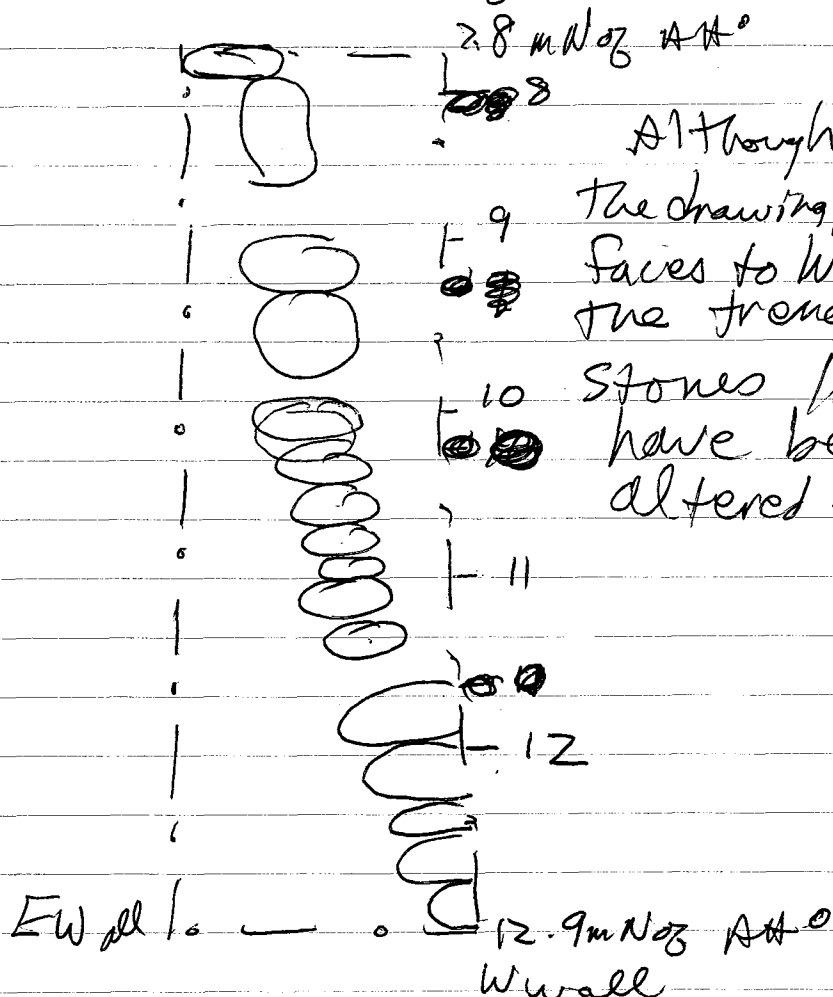 7.8 mN of AH°
8
Although
the drawing,
9
faces to W
the trene
10 Stones
have be
altered
11
12
EWall
12.9mN of AH°
Wwall